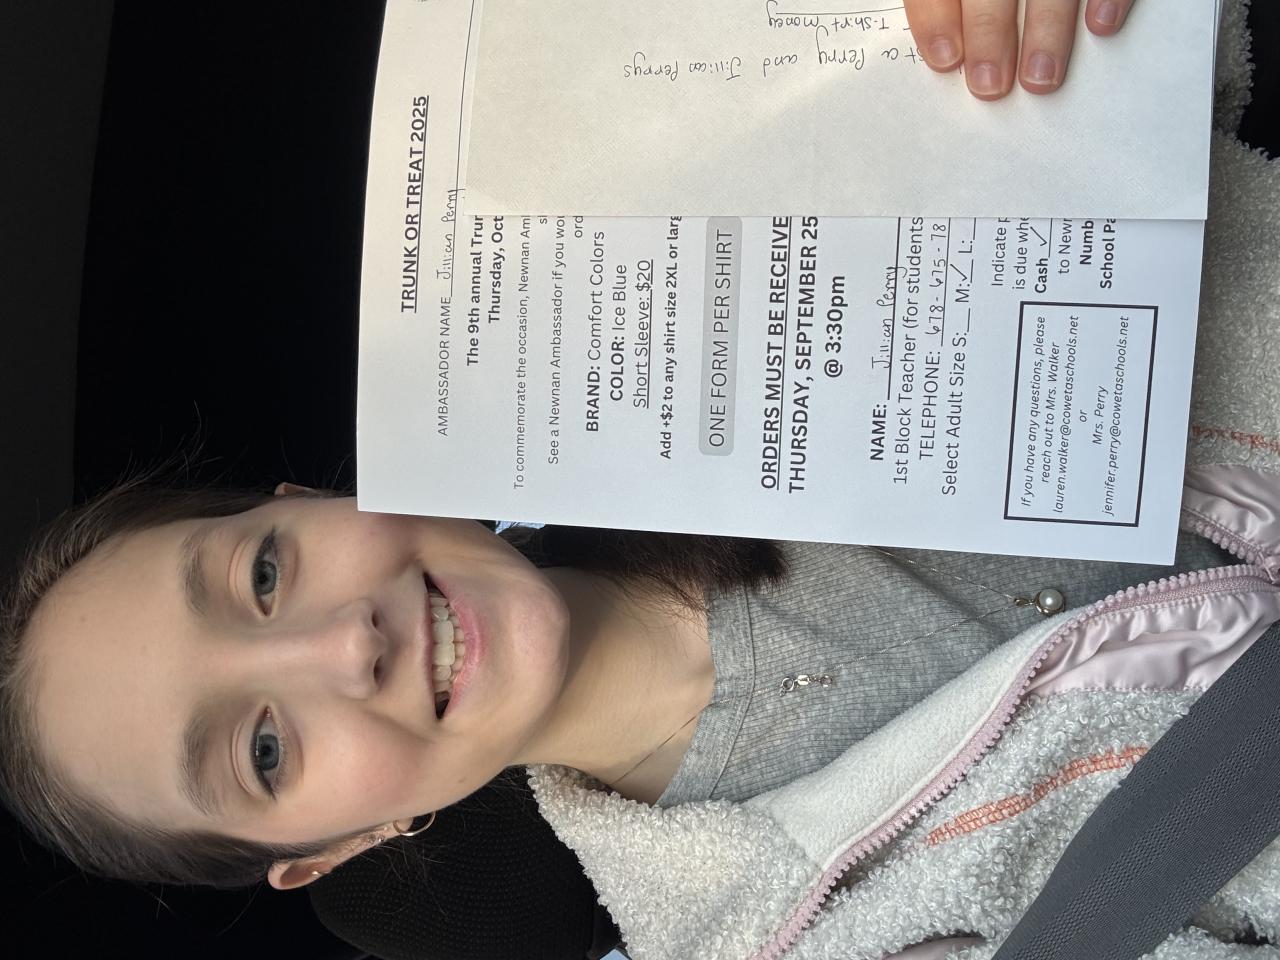 TRUNK OR TREAT 2025
AMBASSADOR NAME Jillian Perry
The 9th annual
Thursday,
To commemorate the occasion, Newnan
See a Newnan Ambassador if you
BRAND: Comfort Colors
COLOR: Ice Blue
Short Sleeve: $20
Add +$2 to any shirt size 2XL or
ONE FORM PER SHIRT
ORDERS MUST BE
THURSDAY, SEPTEMBER 25
@ 3:30pm
NAME: Jillian Perry
1st Block Teacher (for students
TELEPHONE: 678-675-78
Select Adult Size S:__ M:✓ L:
Indicate
is due
Cash ✓
to
School
If you have any questions, please
reach out to Mrs. Walker
lauren.walker@cowetaschools.net
or
Mrs. Perry
jennifer.perry@cowetaschools.net
a Perry and Jillian Perrys
T-shirt money